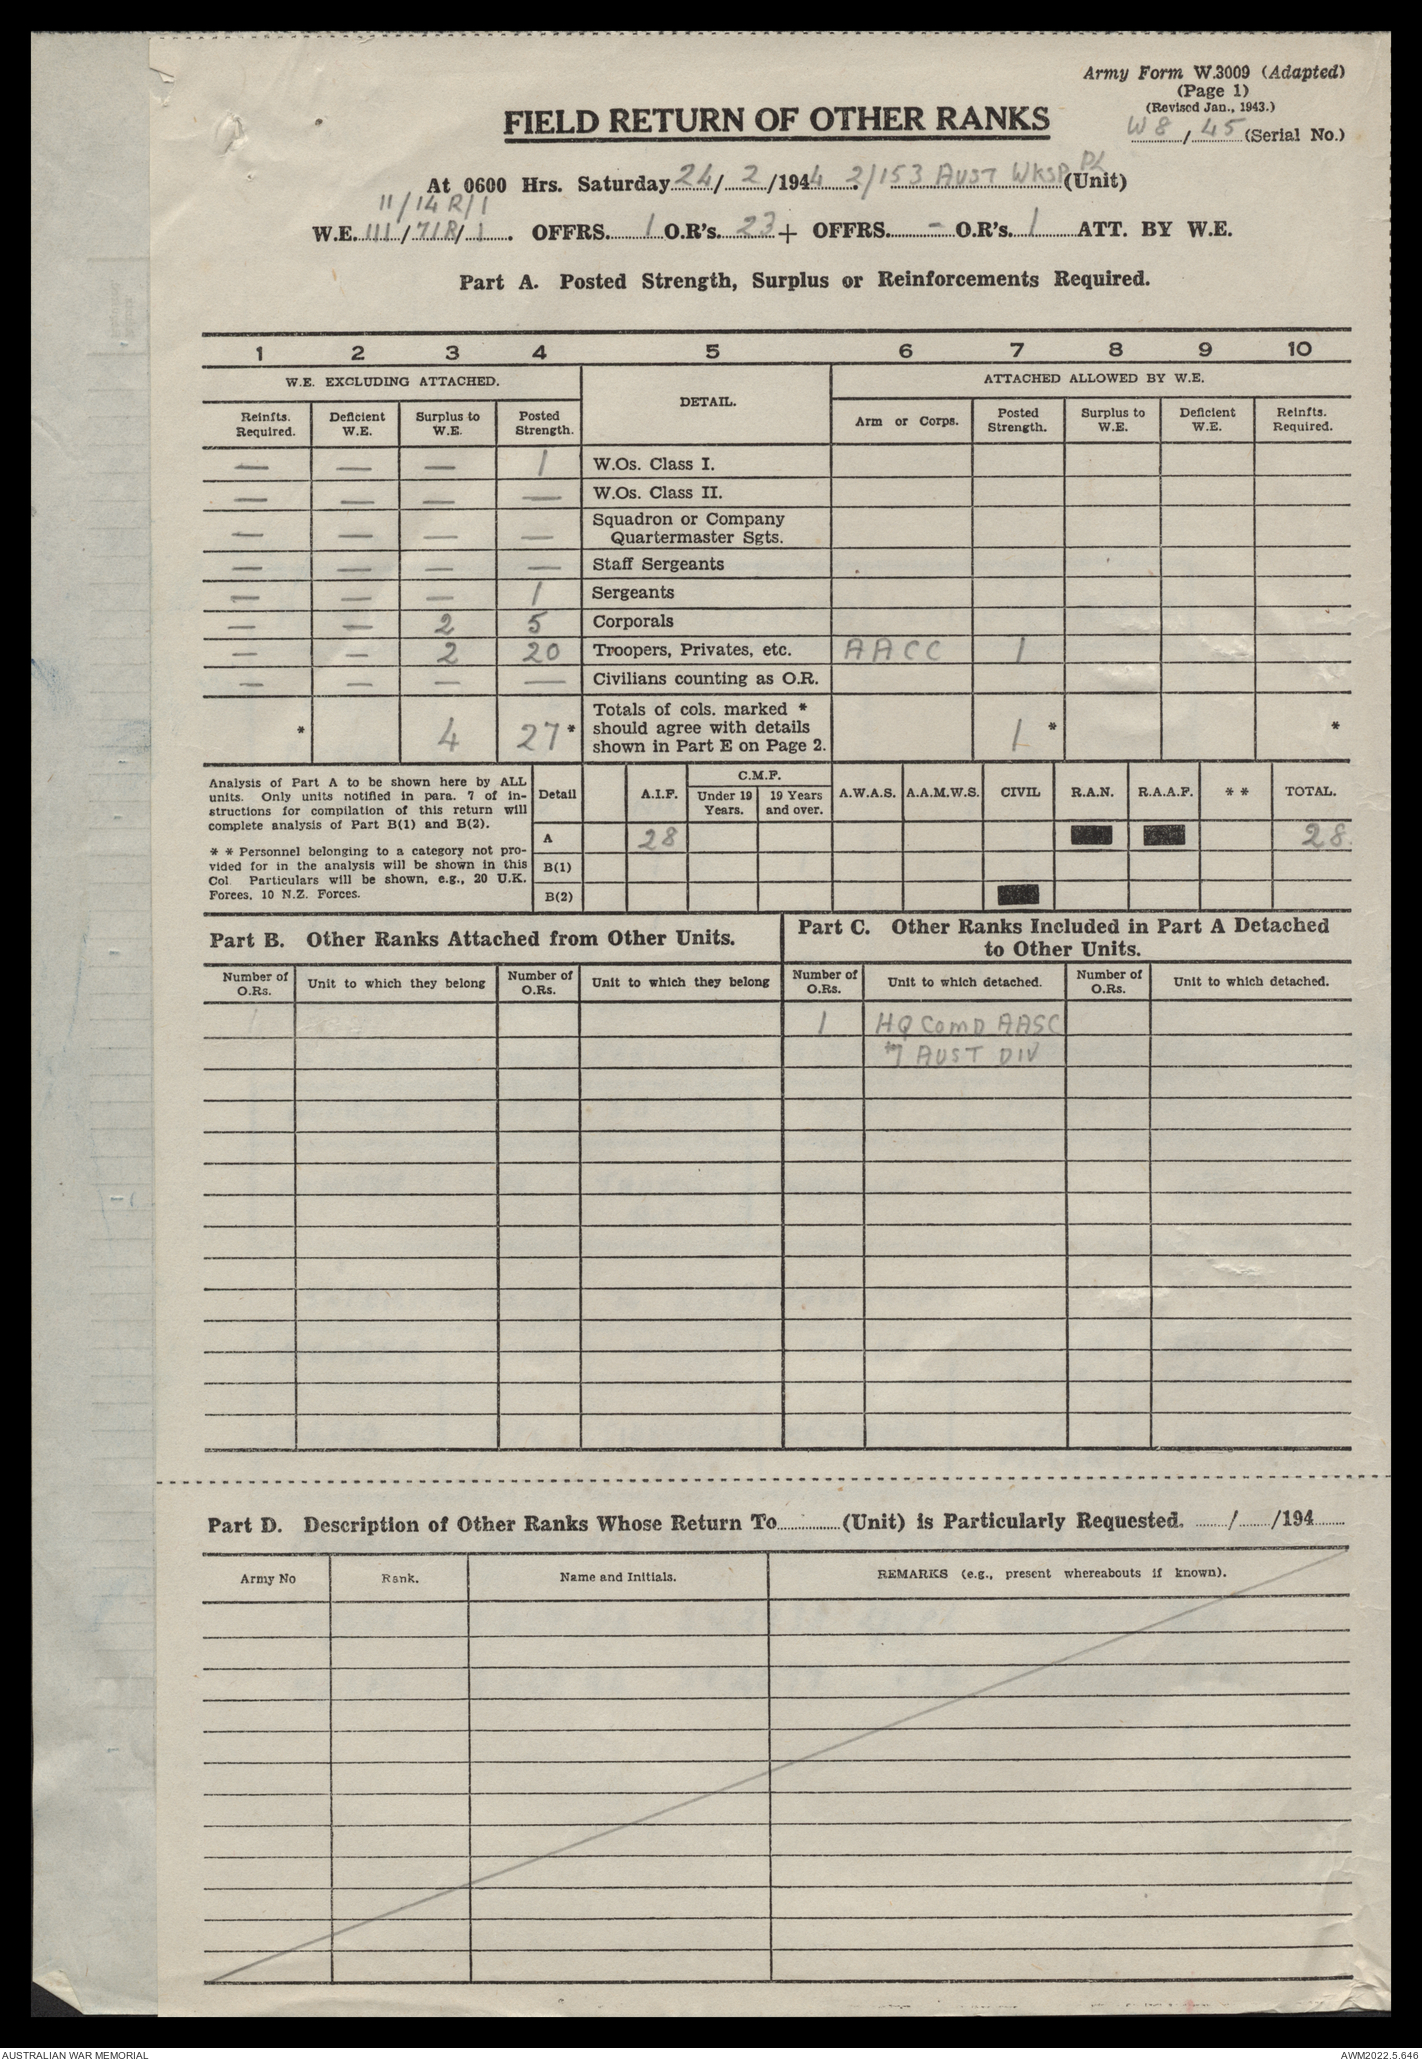 Army Form W.3009 (Adapted)
(Page 1)
(Revised Jan., 1943.)
W 8 / 45 (Serial No.)
FIELD RETURN OF OTHER RANKS
At 0600 Hrs. Saturday 24/ 2 /1944 2/153 AUST WKSP PL (Unit)
11/14 R/1
W.E. 111/71R/1. OFFRS. 1 O.R's. 23 + OFFRS. - O.R's. 1 ATT. BY W.E.
Part A. Posted Strength, Surplus or Reinforcements Required.
1 2 3 4 5 6 7 8 9 10
W.E. EXCLUDING ATTACHED. DETAIL. ATTACHED ALLOWED BY W.E.
Reinfts. Required. Deficient W.E. Surplus to W.E. Posted Strength. Arm or Corps. Posted Strength. Surplus to W.E. Deficient W.E. Reinfts. Required.
— — — 1 W.Os. Class I.
— — — — W.Os. Class II.
— — — — Squadron or Company Quartermaster Sgts.
— — — — Staff Sergeants
— — — 1 Sergeants
— — 2 5 Corporals
— — 2 20 Troopers, Privates, etc. AACC 1
— — — — Civilians counting as O.R.
* 4 27* Totals of cols. marked * should agree with details shown in Part E on Page 2. 1 * *
Analysis of Part A to be shown here by ALL
units. Only units notified in para. 7 of in-
structions for compilation of this return will
complete analysis of Part B(1) and B(2).
* * Personnel belonging to a category not pro-
vided for in the analysis will be shown in this
Col. Particulars will be shown, e.g., 20 U.K.
Forces, 10 N.Z. Forces.
Detail A.I.F. C.M.F. Under 19 Years. 19 Years and over. A.W.A.S. A.A.M.W.S. CIVIL R.A.N. R.A.A.F. * * TOTAL.
A 28 28
B(1)
B(2)
Part B. Other Ranks Attached from Other Units.
Part C. Other Ranks Included in Part A Detached
to Other Units.
Number of O.Rs. Unit to which they belong Number of O.Rs. Unit to which they belong Number of O.Rs. Unit to which detached. Number of O.Rs. Unit to which detached.
1 HQ COMD AASC
7 AUST DIV
Part D. Description of Other Ranks Whose Return To (Unit) is Particularly Requested. / /194
Army No Rank. Name and Initials. REMARKS (e.g., present whereabouts if known).
AUSTRALIAN WAR MEMORIAL
AWM2022.5.646